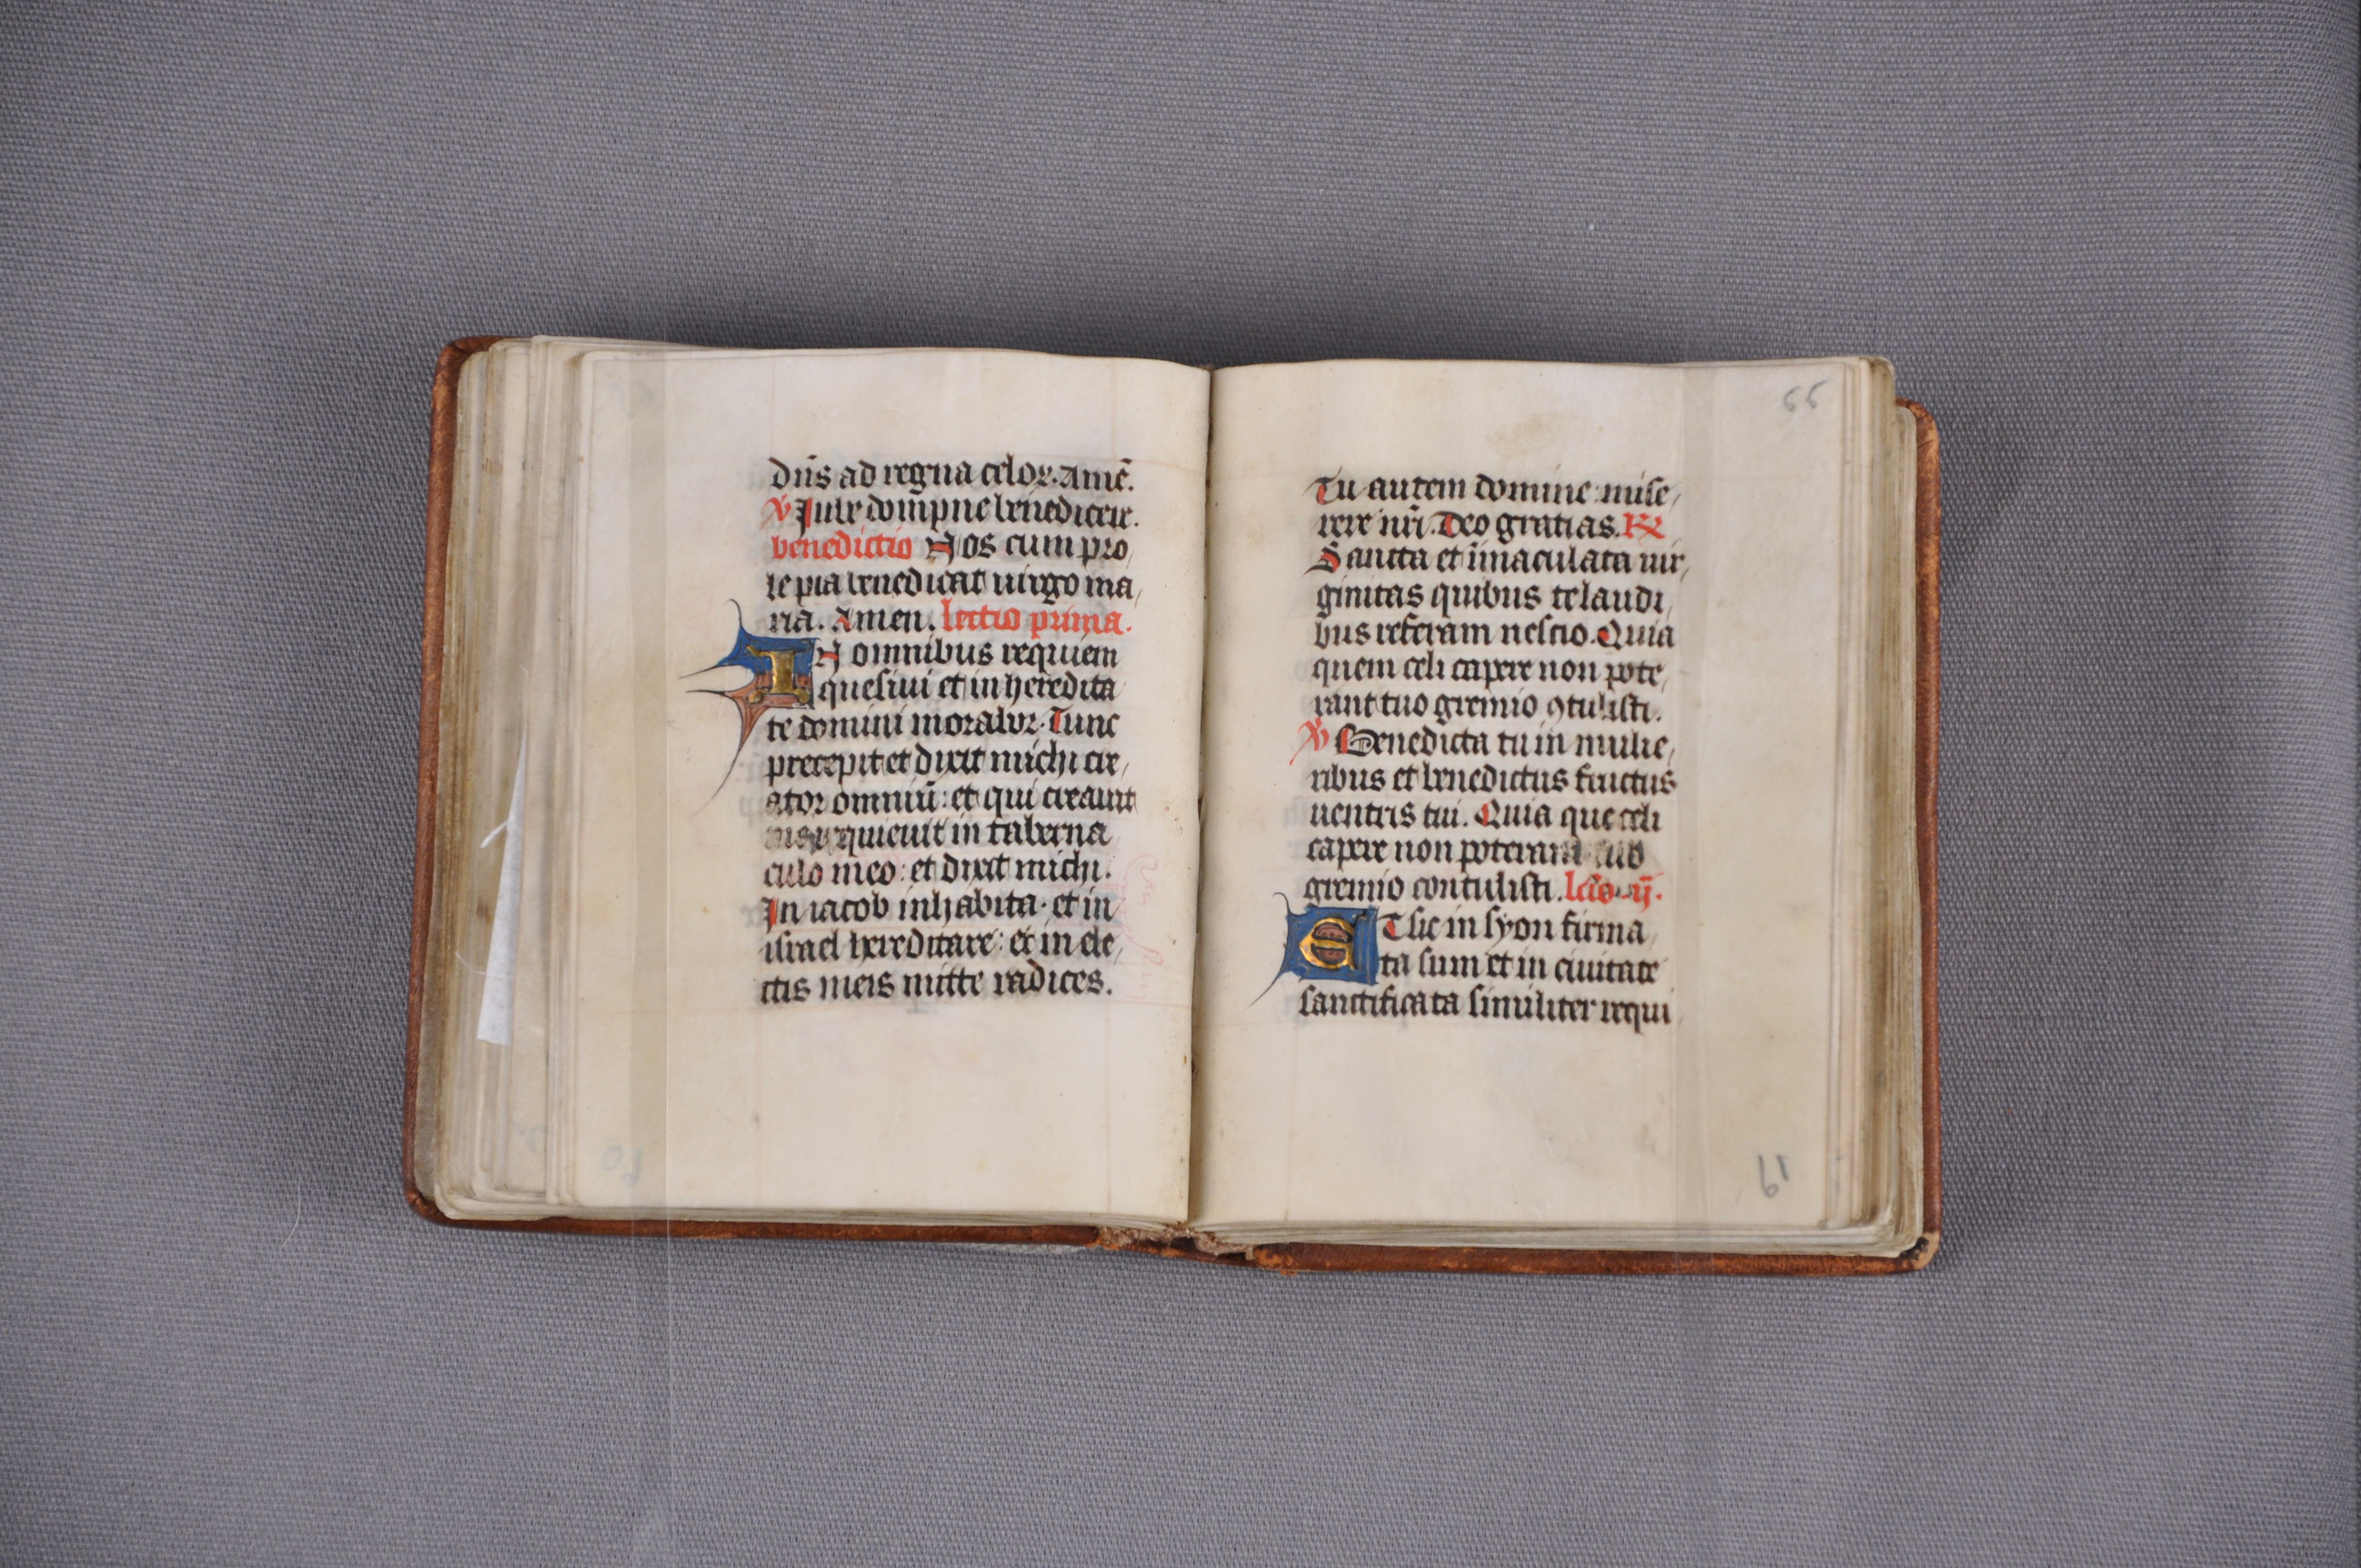 dn̄s ad regna celoꝝ. Amē.
℣ Jube dom̄pne benedicere.
benedictio Nos cum pro
le pia benedicat uirgo ma
ria. Amen. lectio prima.
IN omnibus requiem
quesiui et in heredita
te domini morabor. Tunc
precepit et dixit michi cre
ator omniū: et qui creauit
requieuit in taberna
culo meo: et dixit michi.
In iacob inhabita. et in
israel hereditare: et in ele
ctis meis mitte radices.
66
Tu autem domine mise
rere nr̄i. Deo gratias. ℟
Sancta et īmaculata uir
ginitas quibus te laudi
bus referam nescio. Quia
quem celi capere non pote
rant tuo gremio ꝯtulisti.
℣ Benedicta tu in mulie
ribus et benedictus fructus
uentris tui. Quia que celi
capere non poterant
gremio contulisti. lc̄io ij.
ET sic in syon firma
ta sum et in ciuitate
sanctificata similiter requi
61